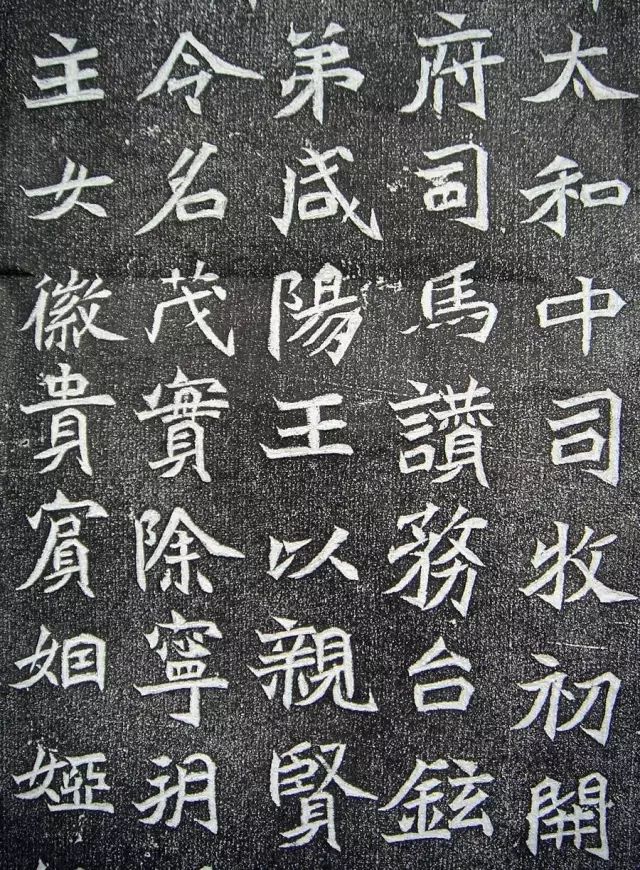 太和中司牧初開
府司馬讃務台鉉
弟咸陽王以親賢
令名茂實除寧玥
主女徽貴賔姻婭